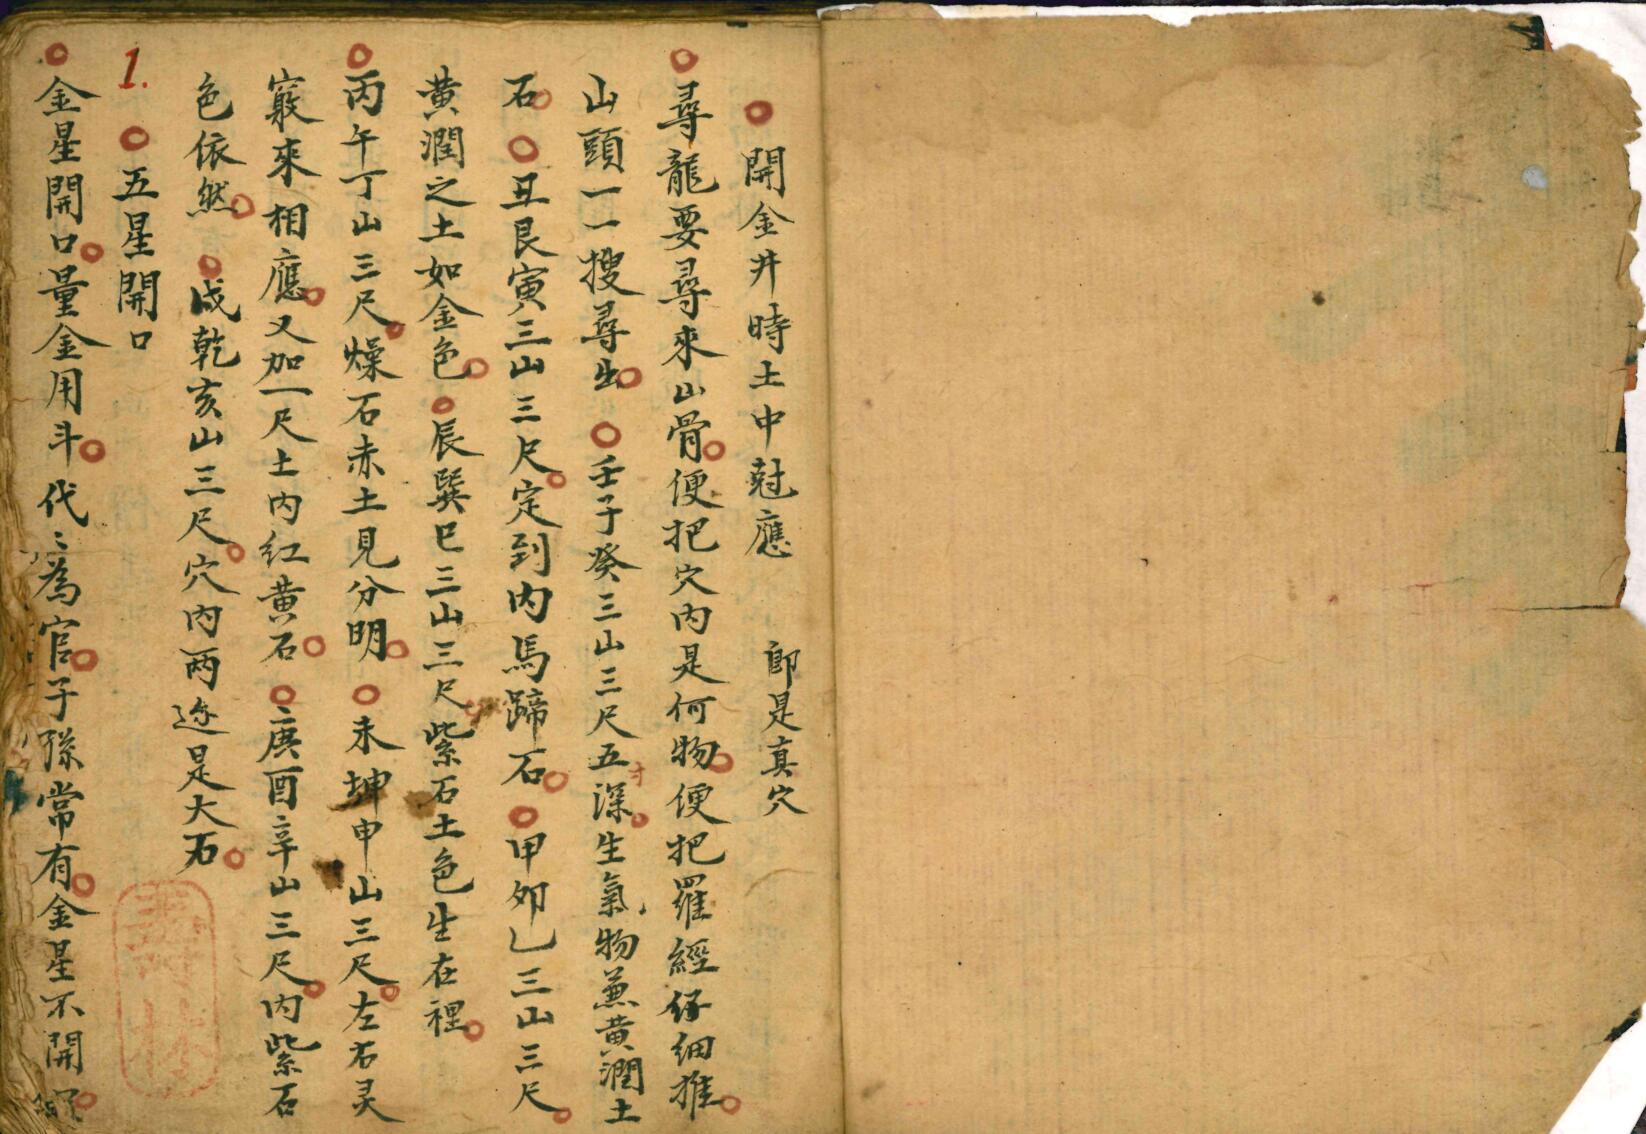 開金井時土中尅應　郎是真穴
尋龍要尋來山骨便把穴內是何物便把羅經仔細推
山頭一一搜尋出壬子癸三山三尺五寸深生氣物兼黃潤土
石丑艮寅三山三尺定到內馬蹄石甲夘乙三山三尺
黃潤之土如金色辰巽巳三山三尺紫石土色生在裡
丙午丁山三尺燥石赤土見分明未坤申山三尺左右灵
竅來相應又加一尺土內紅黃石庚酉辛山三尺內紫石
色依然戌乾亥山三尺穴內兩边是大石
1. 五星開口
金星開口量金用斗代〻為官子孫常有金星不開